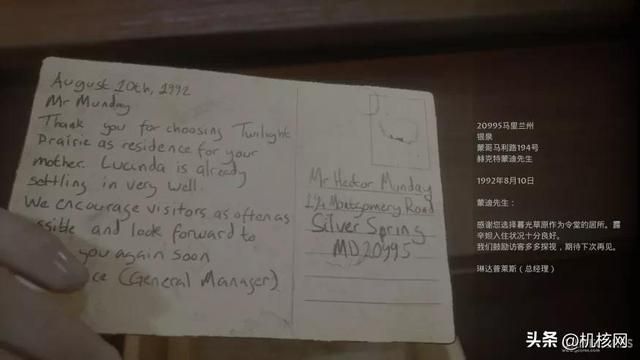 August 10th, 1992
Mr Munday
Thank you for choosing Twilight
Prairie as residence for your
mother. Lucinda is already
settling in very well.
We encourage visitors as often as
ssible and look forward to
you again soon
ce (General Manager)
Mr Hector Munday
Montgomery Road
Silver Spring
MD 20995
20995马里兰州
银泉
蒙哥马利路194号
赫克特蒙迪先生
1992年8月10日
蒙迪先生：
感谢您选择暮光草原作为令堂的居所。露
辛妲入住状况十分良好。
我们鼓励访客多多探视，期待下次再见。
琳达普莱斯（总经理）
头条 @机核网